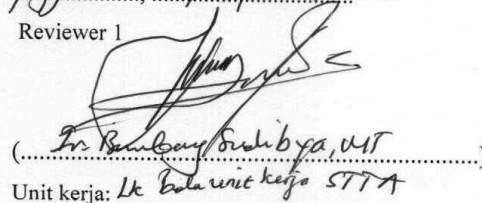 Reviewer 1
(Ir. Bambang Sudibya, MT)
Unit kerja: unit kerja STTA